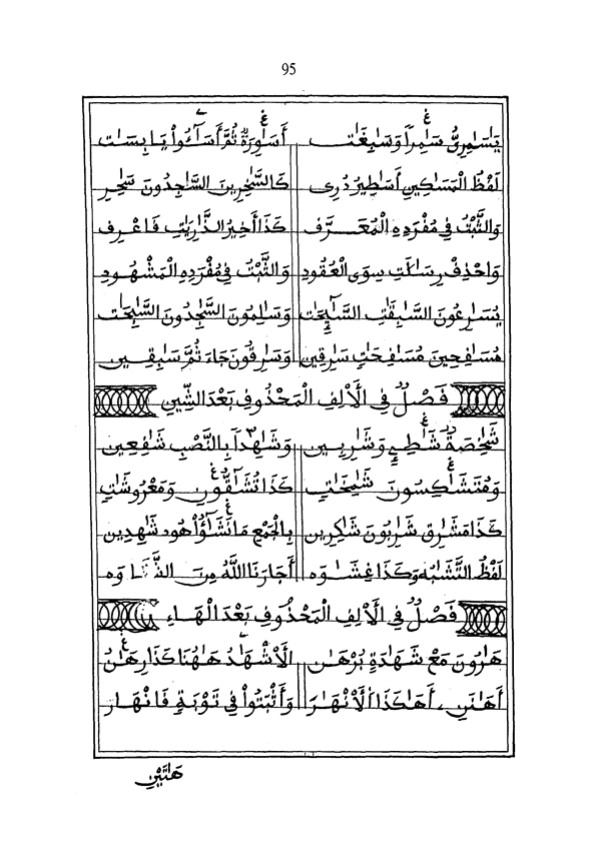 95
يَسَٰمِرِيُّ سَٰمِراً وَسَٰبِغَٰتٍ أَسَٰوِرَةٌ ثُمَّ أَسَٰٓـُٔواْ يَابِسَٰت
لَفْظُ الْمَسَٰكِينِ أَسَٰطِيرُ دُرِى كَالسَّٰخِرِينَ السَّٰجِدُونَ سَٰحِر
وَالثَّبْتُ فِي مُفْرَدِهِ الْمُعَرَّف كَذَا أَخِيرُ الذَّارِيَٰتِ فَاعْرِف
وَاحْذِفْ رِسَٰلَٰتِ سِوَى الْعُقُودِ وَالثَّبْتُ فِي مُفْرَدِهِ الْمَشْهُود
يُسَٰرِعُونَ السَّٰبِقَٰتِ السَّٰٓئِحَٰت وَسَٰلِمُونَ السَّٰجِدُونَ السَّٰبِحَٰت
مُسَٰفِحِينَ مُسَٰفِحَٰتٍ سَٰرِقِين وَسَٰرِقُونَ جَاءَ ثُمَّ سَٰبِقِين
فَصْلٌ فِي الْأَلِفِ الْمَحْذُوفِ بَعْدَ الشِّينِ
شَٰخِصَةٌ شَٰطِـِٕ وَشَٰرِبِين وَشَٰهِداً بِالنَّصْبِ شَٰفِعِين
وَمُتَشَٰكِسُونَ شَٰمِخَٰتٍ كَذَا تُشَٰٓقُّونِ وَمَعْرُوشَٰتٍ
كَذَا مَشَٰرِقِ شَٰرِبُونَ شَٰكِرِين بِالْجَمْعِ مَا نَشَٰٓؤُاْ هُودَ شَٰهِدِين
لَفْظُ التَّشَٰبُهِ وَكَذَا غِشَٰوَه أَجَارَنَا اللَّهُ مِنَ
فَصْلٌ فِي الْأَلِفِ الْمَحْذُوفِ بَعْدَ الْهَاءِ
هَٰرُونَ مَعْ شَهَٰدَةٍ بُرْهَٰن الْأَشْهَٰدُ هَٰهُنَا كَذَا رِهَٰنُ
أَهَٰنَنِ، أَهَٰكَذَا الْأَنْهَٰرَ وَأَثْبَتُواْ فِي تَوْبَةٍ فَانْهَار
هَٰتَيْنِ